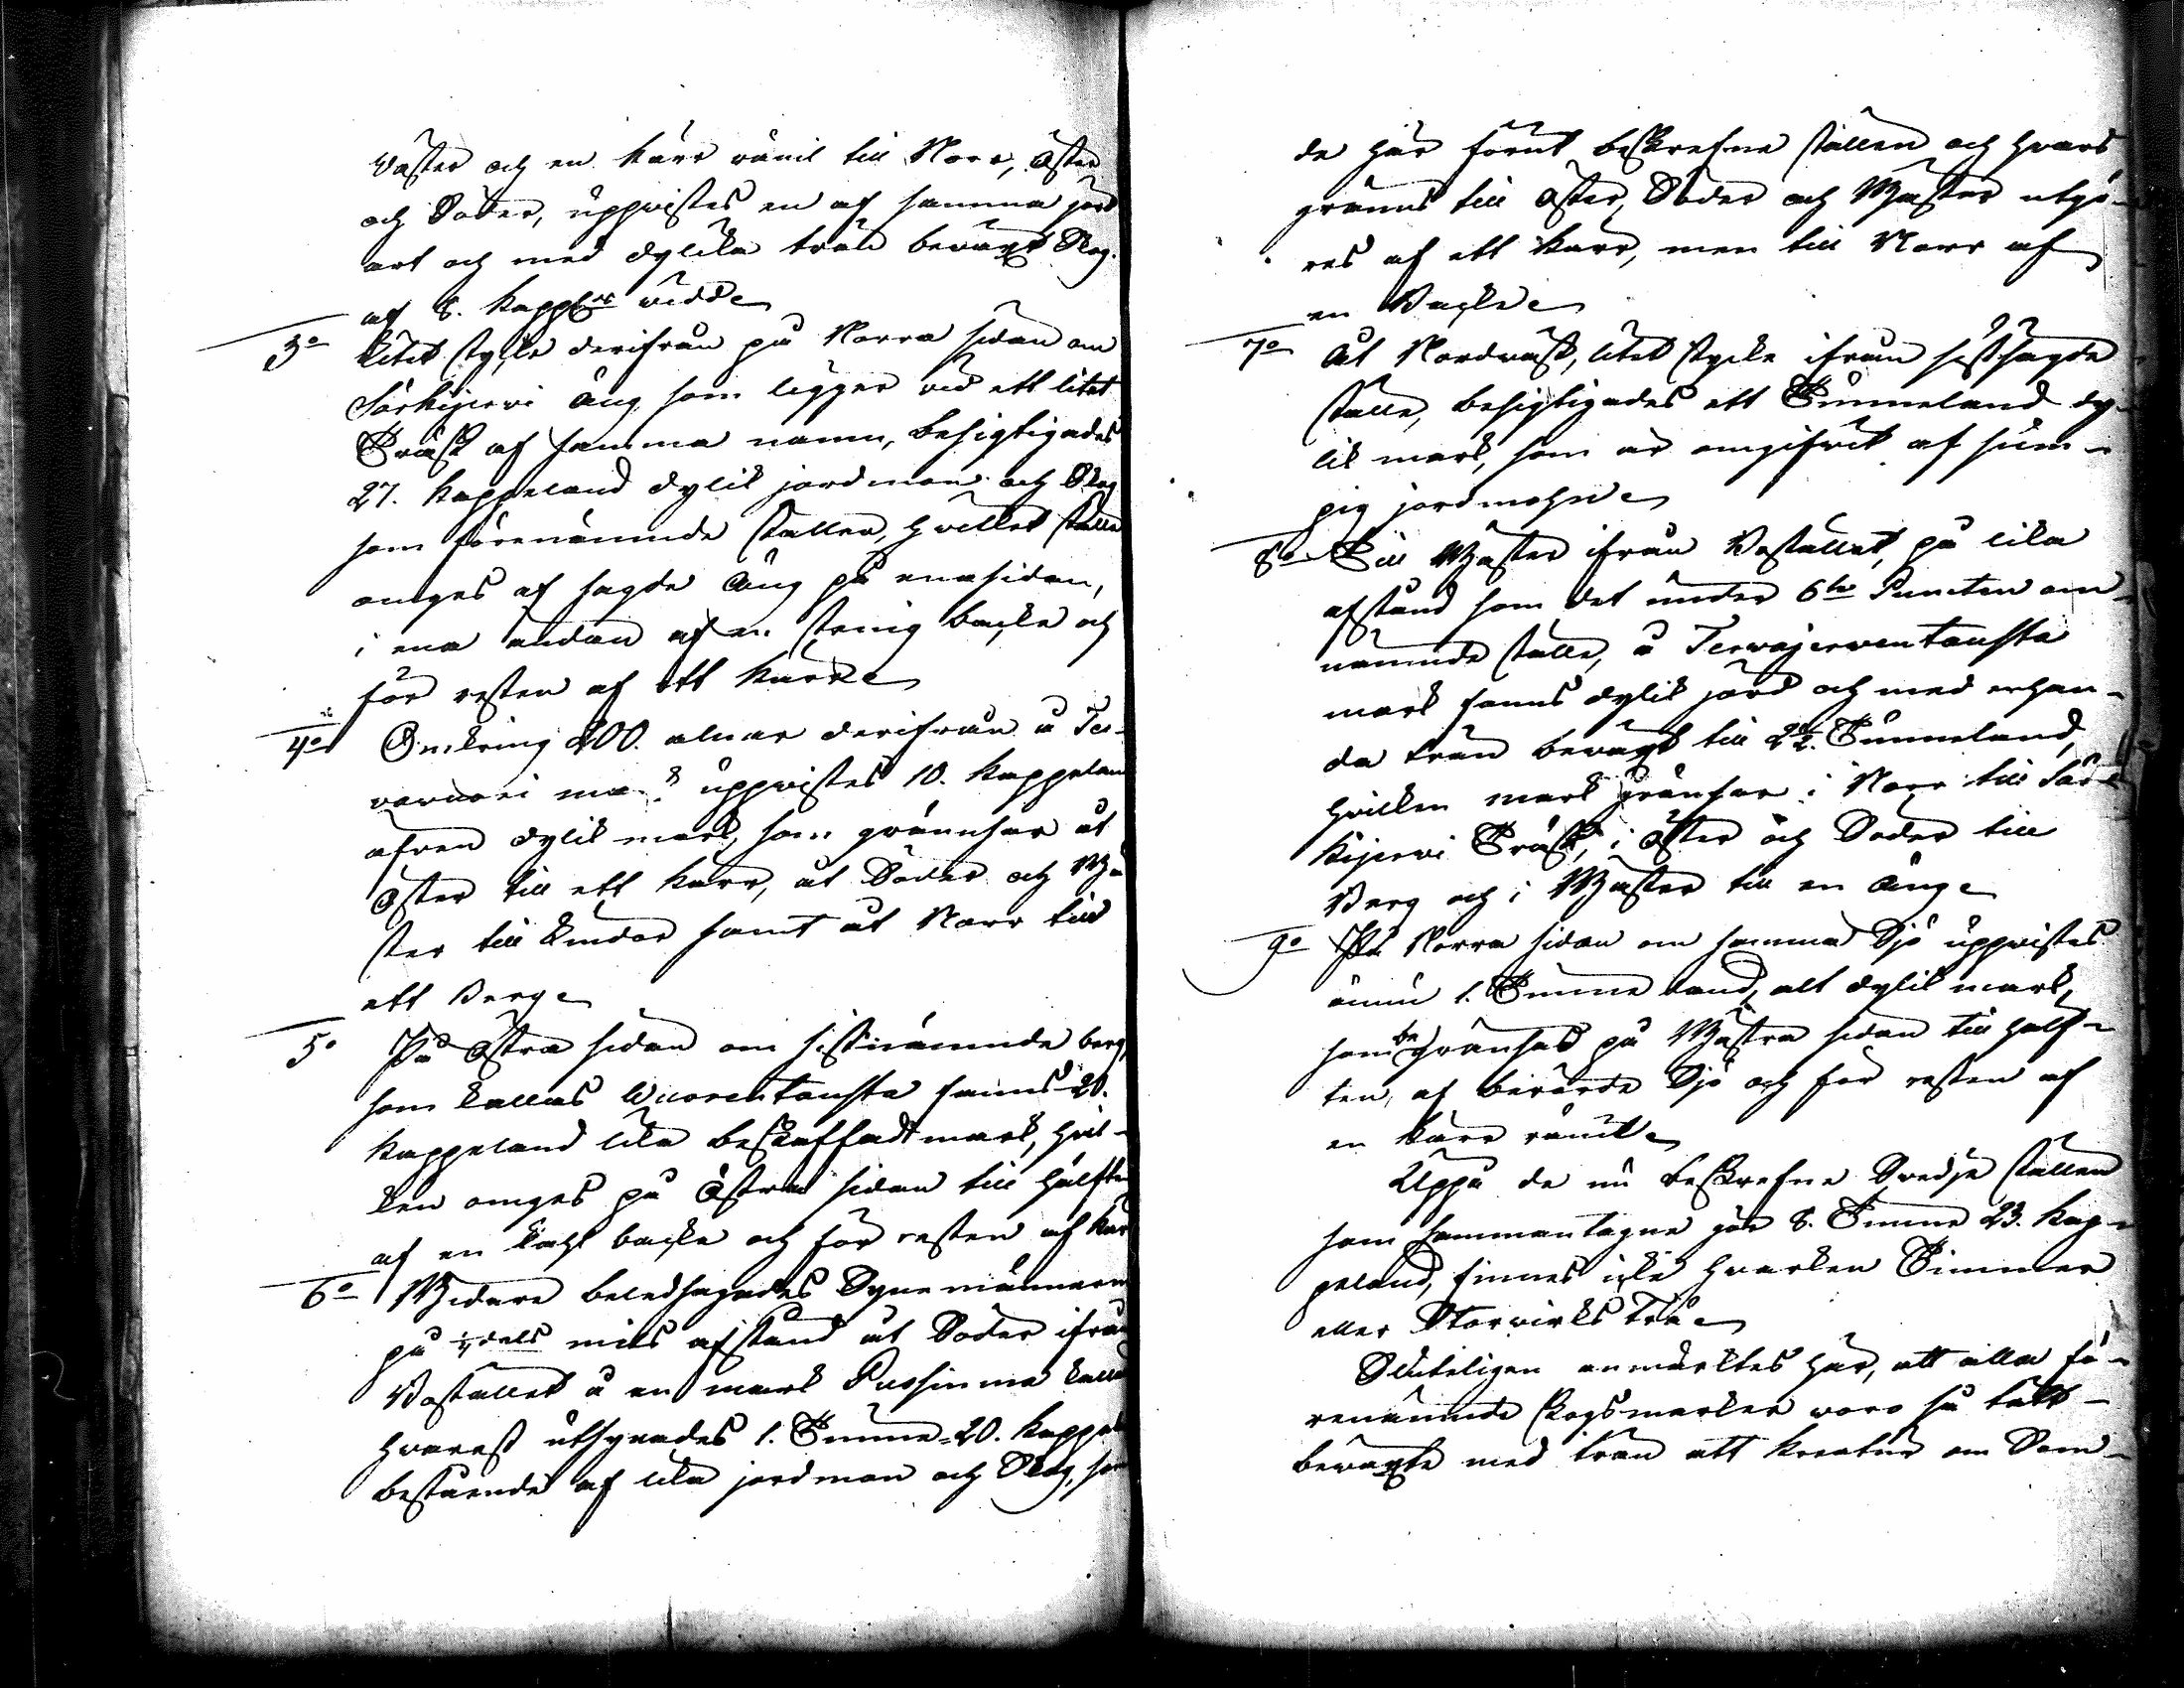 Väster och en kärr rämil till Norr, Öster
och Söder, uppvistes en af samma jord
art och med dylika trän beväxt Skog.
af 8. kappl:s vidde
3o Litet stycke derifrån på Norra sidan om
Särkijervi äng som ligger vid ett litet
Träsk af samma namn, besigtigades
27. kappeland dylik jordmon och Skog
som förenämnde ställen, hvilket ställe
omges af sagde äng på ena sidan,
i ena ändan af en stenig backe och
för resten af ett kärr
4o Omkring 200. alnar derifrån å Ter-
vavuori mark uppvistes 10. kappelan
äfven dylik mark, som gränsar åt
Öster till ett kärr, åt Söder och Wä
ster till Lindor samt åt Norr till
ett Berg
5o På Östra sidan om sistnämnde berg,
som kallas Wuorentausta fanns 20.
kappeland lika beskaffad mark, hvil-
ken omges på Östra sidan till hälften
af en kahl backe och för resten af kär
6o Widare beledsagades Synemännerne
på 1/4 dels mils afstånd åt Söder ifrån
Bostället å en mark Pussinma kallad
hvarest utsynades 1. Tunne 20. kappel
bestående af lika jordmon och Skog, som
de här förut beskrefne ställen och hvars
gränns till Öster, Söder och Wäster utgö-
res af ett kärr, men till Norr af
en Backe
7o Åt Nordväst, litet stycke ifrån sistsagde
ställe, besigtigades ett Tunneland dy-
lik mark, som är omgifvit af sum-
pig jordmohn
8o Till Wäster ifrån Bostället, på lika
afstånd som det under 6te Puncten om-
nämnde ställe, å Terwajerwentausta
mark fanns dylik jord och med enhan-
da trän beväxt till 2 1/2. Tunneland,
hvilken mark gränsar i Norr till Sär-
kijervi Träsk, i Öster och Söder till
Berg och i Wäster till en äng
9o På Norra sidan om samma Sjö uppvistes
ännu 1. Tunneland, alt dylik mark,
som begränsas på Wästra sidan till hälf-
ten, af berörde Sjö och för resten af
en kärr rämil
Uppå de nu beskrefne Svedje ställen
som sammantagne gör 8. Tunne 23. kap-
peland, finnes icke hvarken Timmer
eller Storvirks trä
Sluteligen anmärktes här, att alla fö-
renämnde skogsmarker woro så tätt-
bewäxte med trän att kreatur om Som-